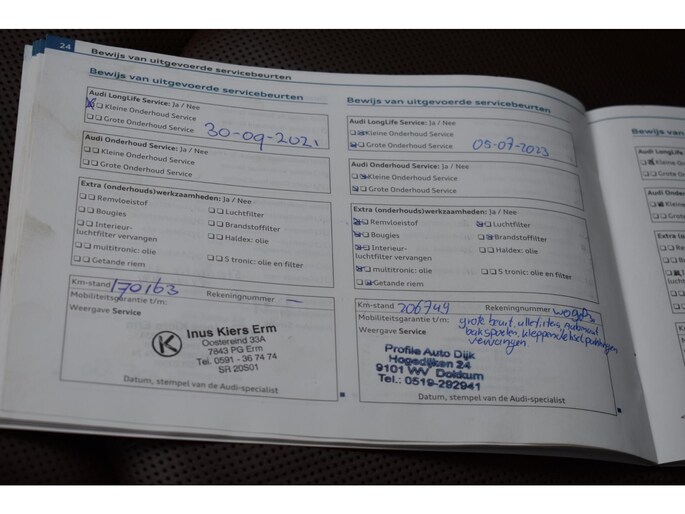 24 Bewijs van uitgevoerde servicebeurten
Bewijs van uitgevoerde servicebeurten
Audi LongLife Service: Ja / Nee
Kleine Onderhoud Service
Grote Onderhoud Service
30-09-2021
Audi Onderhoud Service: Ja / Nee
Kleine Onderhoud Service
Grote Onderhoud Service
Extra (onderhouds)werkzaamheden: Ja / Nee
Remvloeistof Luchtfilter
Bougies Brandstoffilter
Interieur- Haldex: olie
luchtfilter vervangen
multitronic: olie S tronic: olie en filter
Getande riem
Km-stand 170163 Rekeningnummer —
Mobiliteitsgarantie t/m:
Weergave Service
K Inus Kiers Erm
Oostereind 33A
7843 PG Erm
Tel. 0591 - 36 74 74
SR 20S01
Datum, stempel van de Audi-specialist
Bewijs van uitgevoerde servicebeurten
Audi LongLife Service: Ja / Nee
Kleine Onderhoud Service
Grote Onderhoud Service 05-07-2023
Audi Onderhoud Service: Ja / Nee
Kleine Onderhoud Service
Grote Onderhoud Service
Extra (onderhouds)werkzaamheden: Ja / Nee
Remvloeistof Luchtfilter
Bougies Brandstoffilter
Interieur- Haldex: olie
luchtfilter vervangen
multitronic: olie S tronic: olie en filter
Getande riem
Km-stand 206749 Rekeningnummer
Mobiliteitsgarantie t/m: grote beurt, alle filters, automaat
Weergave Service bak spoelen, kleppendeksel pakkingen
vervangen.
Profile Auto Dijk
Hogedijken 24
9101 WV Dokkum
Tel.: 0519-292941
Datum, stempel van de Audi-specialist
Bewijs van
Audi LongLife
Kleine
Grote
Audi Onder
Kleine
Grote
Extra (on
Km-st
Mobil
Weerg